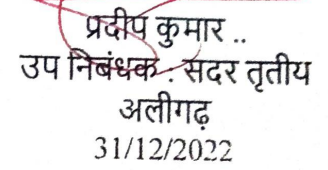 प्रदीप कुमार ..
उप निबंधक : सदर तृतीय
अलीगढ़
31/12/2022